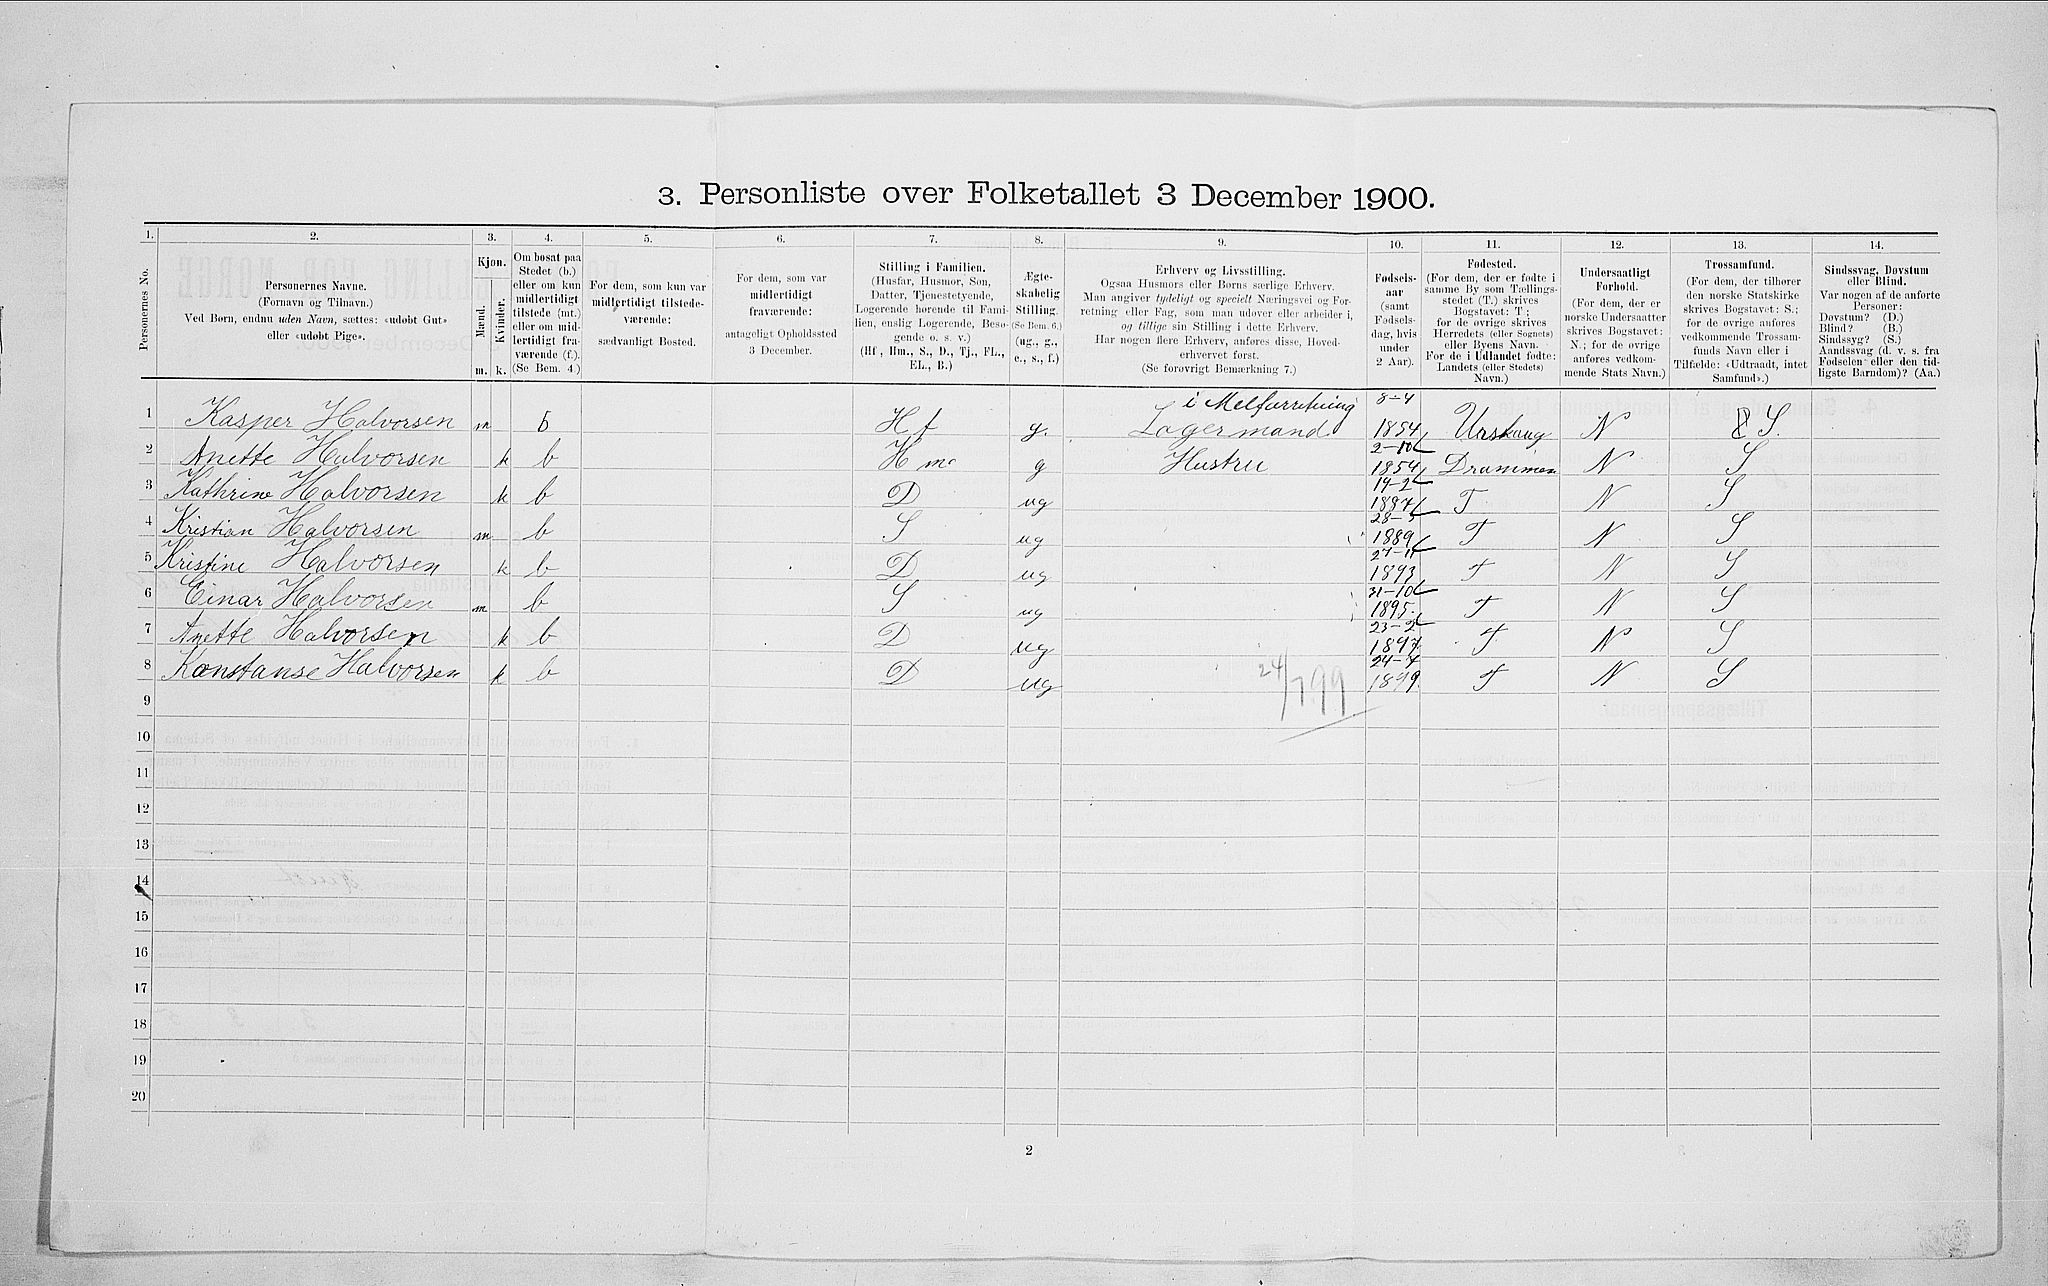 3. Personliste over Folketallet 3 December 1900.
1. 2. 3. 4. 5. 6. 7. 8. 9. 10. 11. 12. 13. 14.
Personernes No.
Personernes Navne.
(Fornavn og Tilnavn.)
Ved Børn, endnu uden Navn, sættes: «udøbt Gut»
eller «udøbt Pige».
Kjøn.
Mænd.
Kvinder.
m. k.
Om bosat paa
Stedet (b.)
eller om kun
midlertidigt
tilstede (mt.)
eller om mid-
lertidigt fra-
værende (f.).
(Se Bem. 4.)
For dem, som kun var
midlertidigt tilstede-
værende:
sædvanligt Bosted.
For dem, som var
midlertidigt
fraværende:
antageligt Opholdssted
3 December.
Stilling i Familien.
(Husfar, Husmor, Søn,
Datter, Tjenestetyende,
Logerende hørende til Fami-
lien, enslig Logerende, Besø-
gende o. s. v.)
(Hf., Hm., S., D., Tj., FL.,
EL., B.)
Ægte-
skabelig
Stilling.
(Se Bem. 6.)
(ug., g.,
e., s., f.)
Erhverv og Livsstilling.
Ogsaa Husmors eller Børns særlige Erhverv.
Man angiver tydeligt og specielt Næringsvei og For-
retning eller Fag, som man udøver eller arbeider i,
og tillige sin Stilling i dette Erhverv.
Har nogen flere Erhverv, anføres disse, Hoved-
erhvervet først.
(Se forøvrigt Bemærkning 7.)
Fødsels-
aar
(samt
Fødsels-
dag, hvis
under
2 Aar).
Fødested.
(For dem, der er fødte i
samme By som Tællings-
stedet (T.) skrives
Bogstavet: T;
for de øvrige skrives
Herredets (eller Sognets)
eller Byens Navn.
For de i Udlandet fødte:
Landets (eller Stedets)
Navn.)
Undersaatligt
Forhold.
(For dem, der er
norske Undersaatter
skrives Bogstavet:
N.; for de øvrige
anføres vedkom-
mende Stats Navn.)
Trossamfund.
(For dem, der tilhører
den norske Statskirke
skrives Bogstavet: S.;
for de øvrige anføres
vedkommende Trossam-
funds Navn eller i
Tilfælde: «Udtraadt, intet
Samfund».)
Sindssvag, Døvstum
eller Blind.
Var nogen af de anførte
Personer:
Døvstum? (D.)
Blind? (B.)
Sindssyg? (S.)
Aandssvag (d. v. s. fra
Fødselen eller den tid-
ligste Barndom)? (Aa.)
i Melforretning 8-4
1 Kasper Halvorsen m b Hf g. Lagermand 1854 Urskaug N S.
2-10
2 Anette Halvorsen k b Hm g Hustru 1854 Drammen N S
19-2
3 Kathrine Halvorsen k b D ug 1887 T N S
28-5
4 Kristian Halvorsen m b S ug 1889 T N S
27-11
5 Kristine Halvorsen k b D ug 1893 T N S
31-10
6 Einar Halvorsen m b S ug 1895. T N S
23-2
7 Anette Halvorsen k b D ug 1897 T N S
24-7
8 Konstanse Halvorsen k b D ug 24/7 99 1899. T N S
9
10
11
12
13
14
15
16
17
18
19
20
2